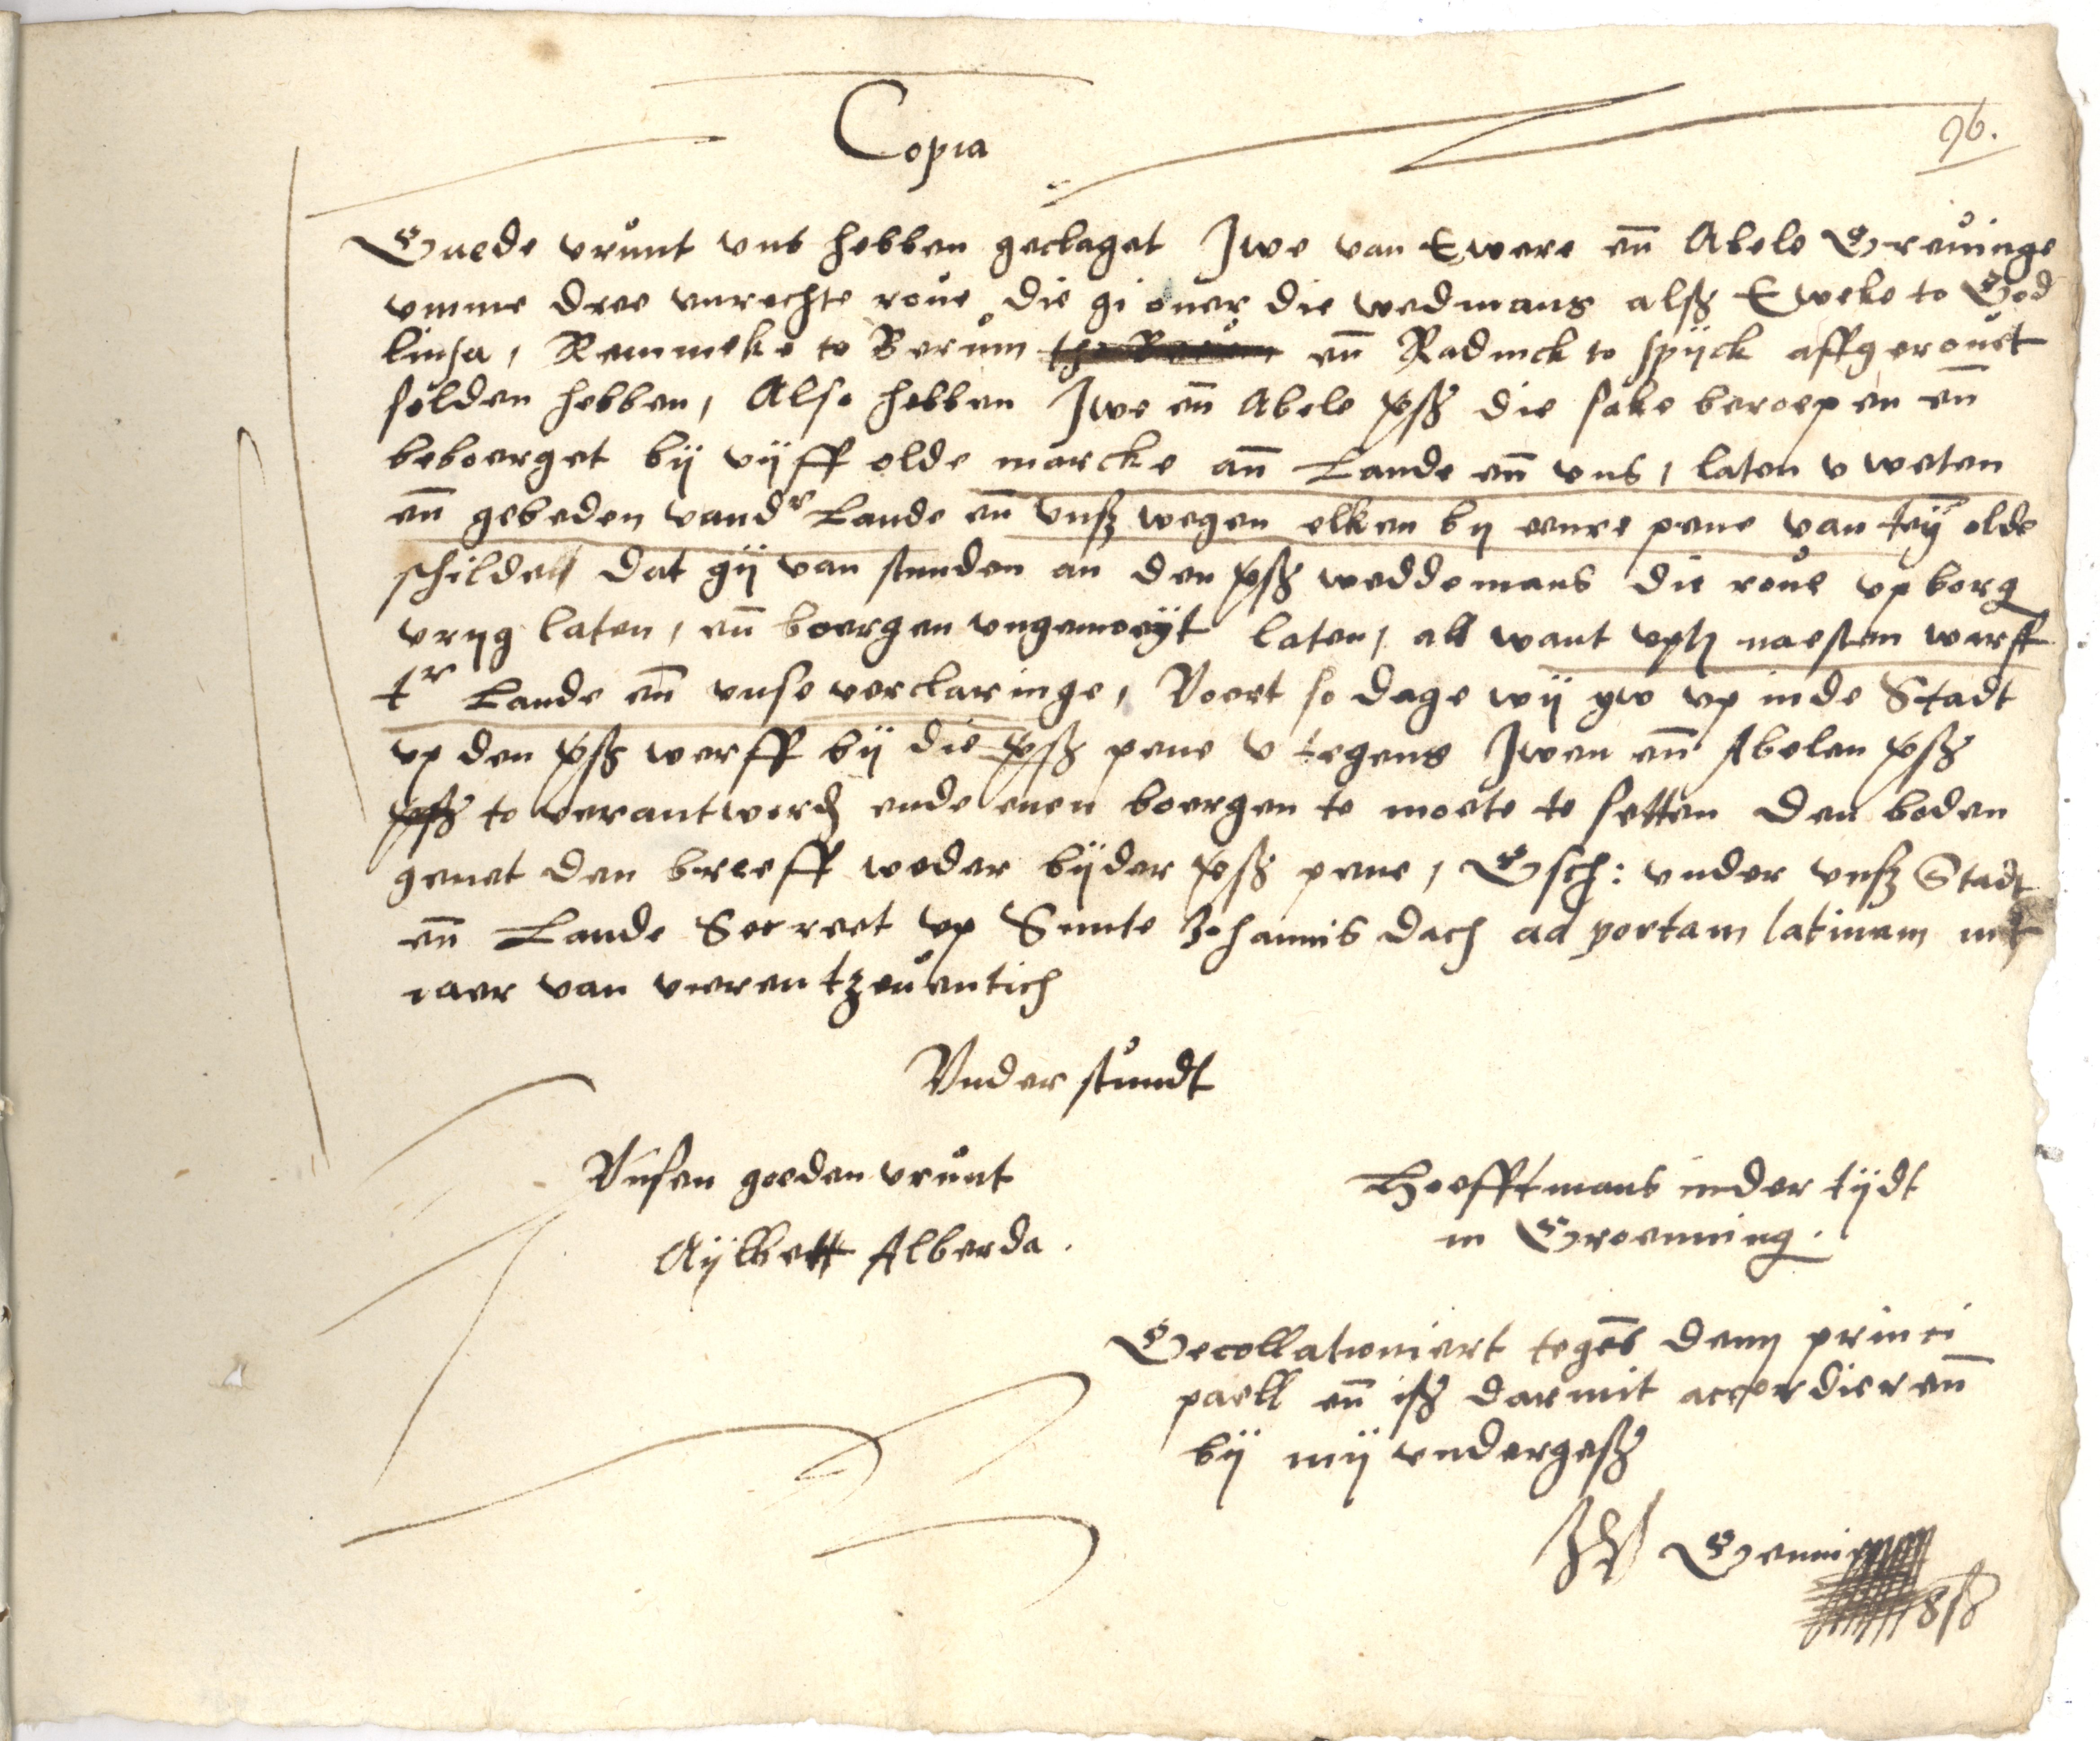 Copia
96.
Guede vrŭnt vns hebben geclaget Iwe van Ewere en̄ Abele Grevinge
vmme dree vnrechte roŭe die gi oŭer die wedmans alss Eweke to God
linsa, Remmeke to Berŭm en̄ Radmck to Spijck affgeroŭet
solden hebben, Also hebben Iwe en̄ Abele die sake beroepen en̄
beboerget bij vijff olde marcke an̄ Lande en̄ vns, laten v weten
en̄ gebeden vandr Lande en̄ vnss wegen elken by eenre pene van olde
schilde dat gij van stunden an den weddemans die roŭe vp borg
vryg laten, en̄ boergen vngemoeyt laten, all want naesten warff
tr Lande en̄ vnse verclaringe, Voert so dage wij yw vp inde Stadt
vp den werff bij die pene v tegens Iwen en̄ Abelen
to verantword ende enen boergen te moete te setten Den boden
gevet den breeff weder bijder pene, Gsch: vnder vnss Stadt
en̄ Lande Secreet vp Sunte Johannis dach ad portam latinam int
iaer van vieren tzeŭentich
Vnder stŭndt
Vnsen goeden vrŭnt
Aijlbett Alberda.
Hoefftmans inder tijdt
in Groenning.
Gecollationiert tegēs denn princi
paell en̄ iss darmit accordieren̄
bij mij vndergess